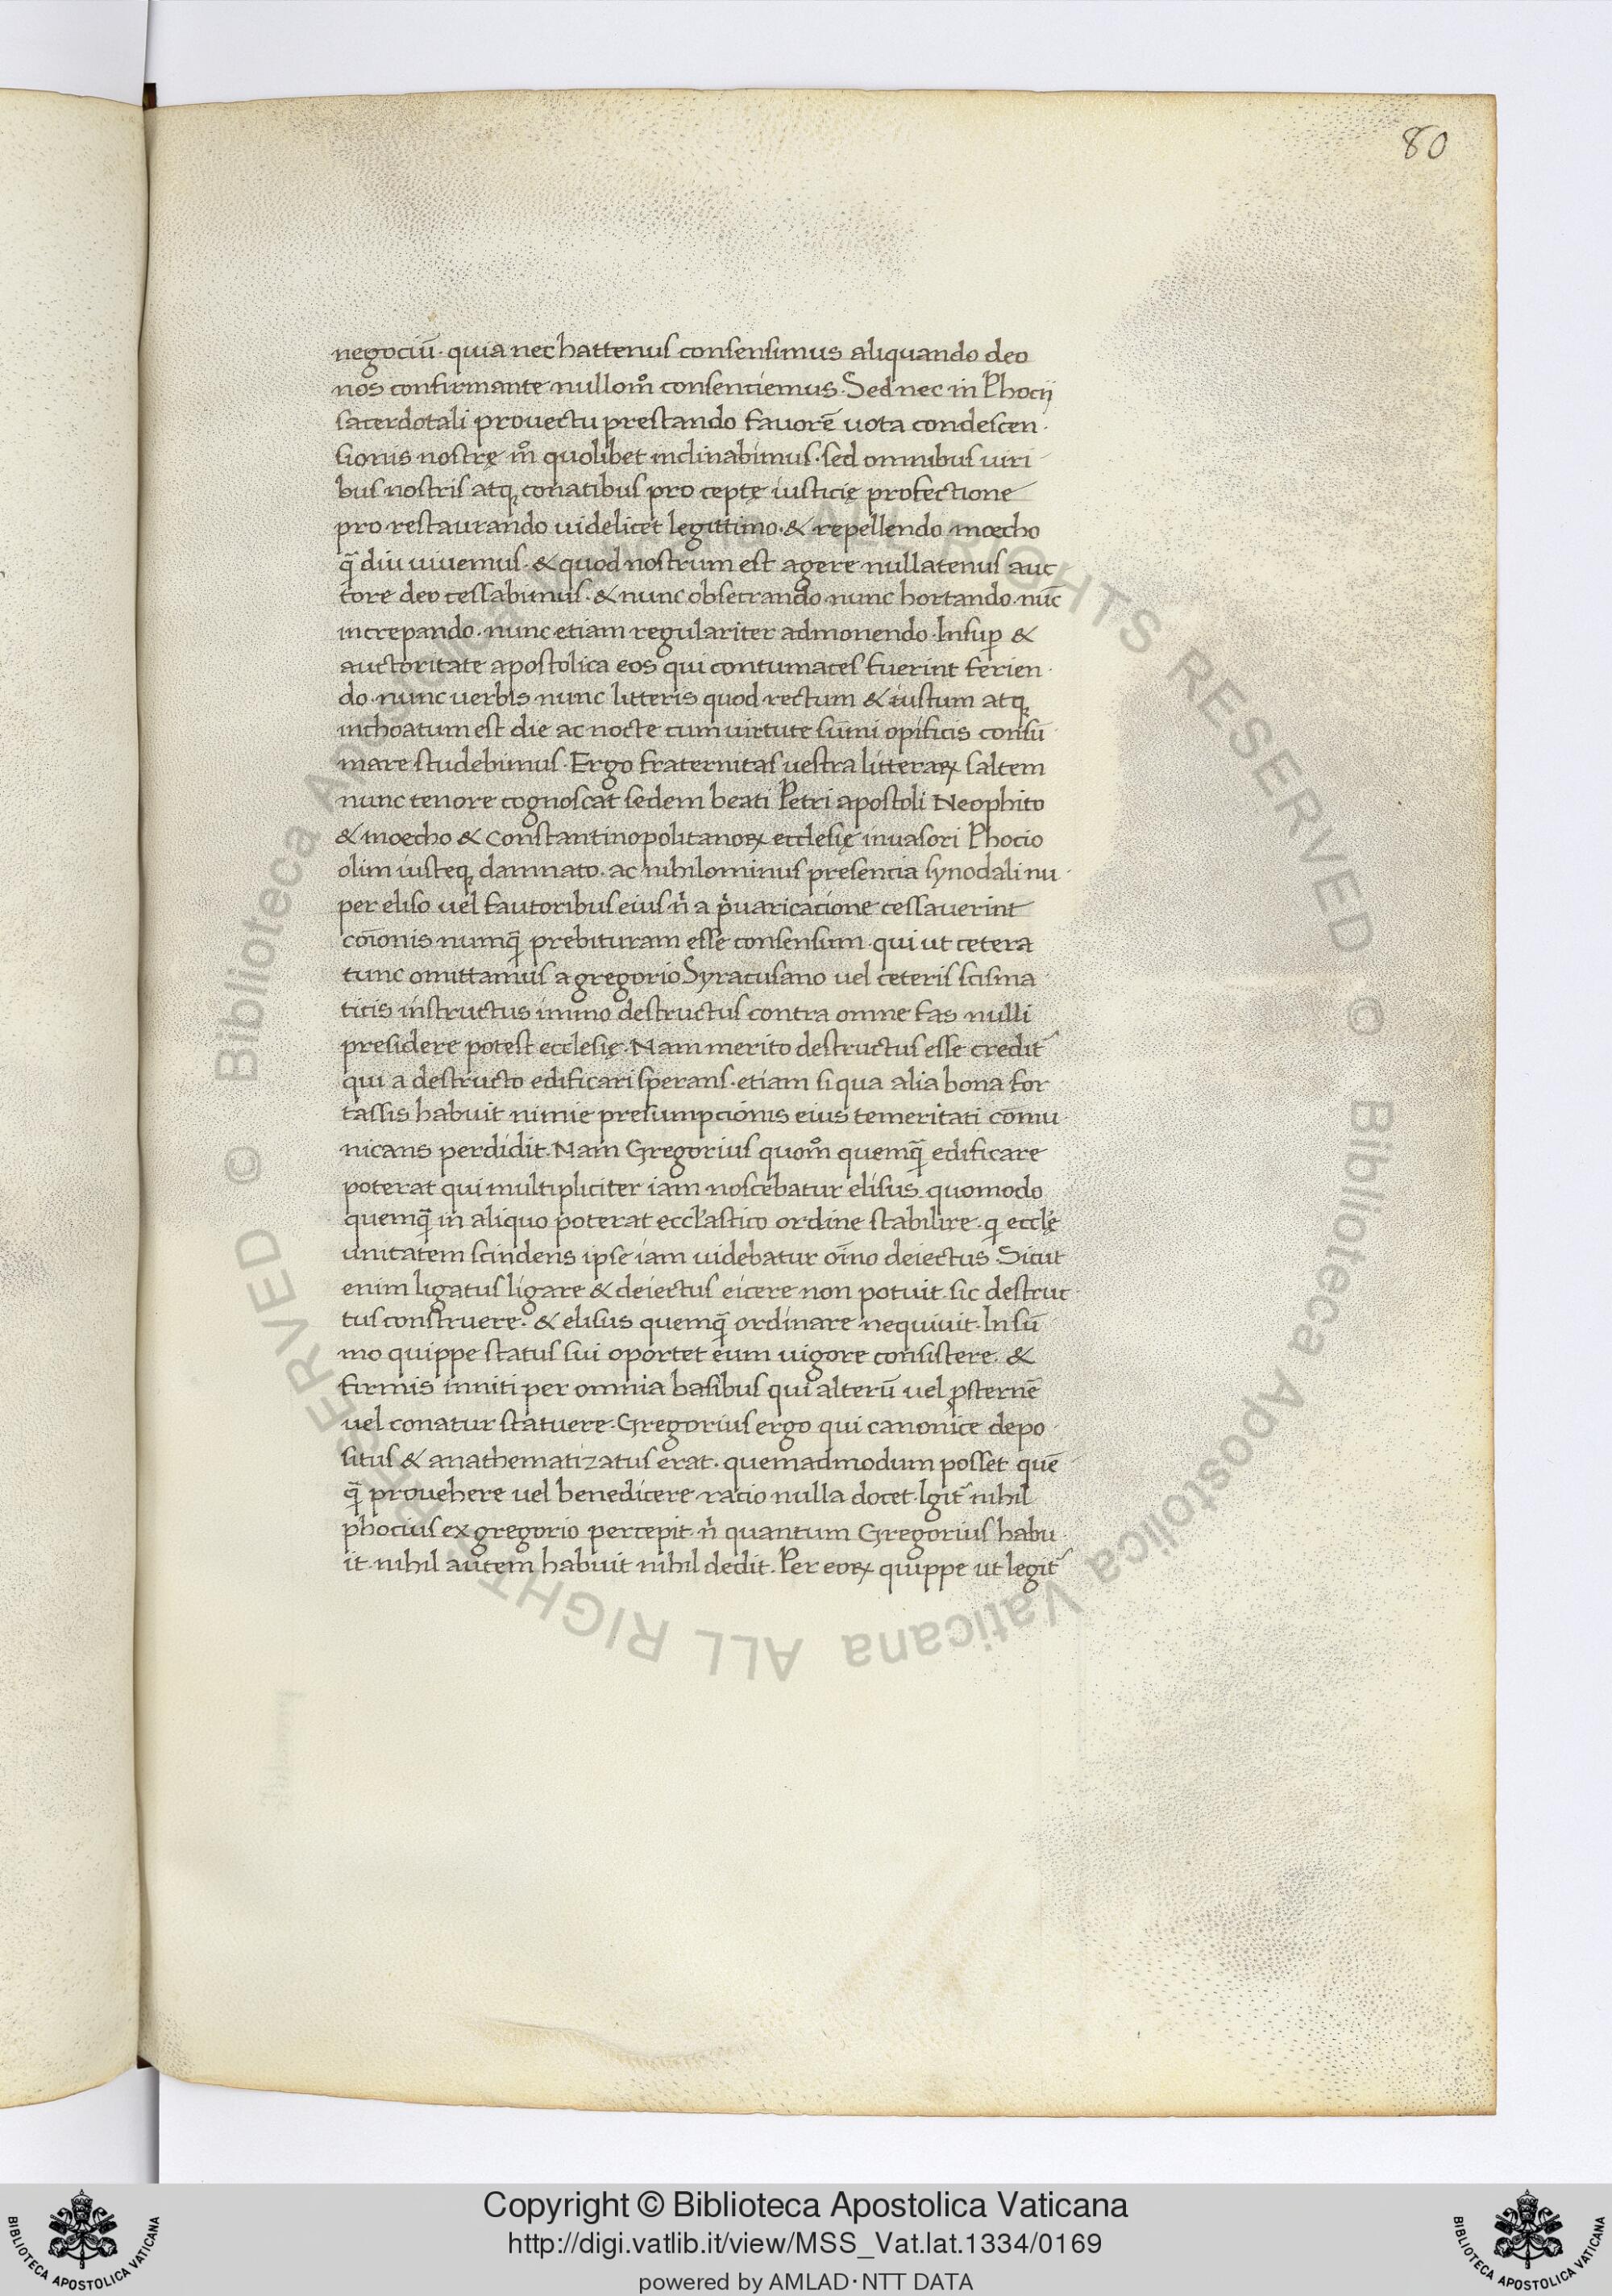 80
negociū · quia nec hactenus consensimus aliquando deo
nos confirmante nullom̊ consentiemus · Sed nec in Phocij
sacerdotali prouectu prestando fauorē uota condescen ·
sionis nostrę m̊ quolibet inclinabimus · sed omnibus uiri
bus nostris atq; conatibus pro ceptę iusticię profectione
pro restaurando uidelicet legittimo · & repellendo moecho
q̄ diu uiuemus · & quod nostrum est agere nullatenus auc
tore deo cessabimus · & nunc obsecrando nunc hortando nūc
increpando · nunc etiam regulariter admonendo · Insuꝑ &
auctoritate apostolica eos qui contumaces fuerint ferien ·
do · nunc uerbis nunc litteris quod rectum & iustum atq;
inchoatum est die ac nocte cum uirtute sūmi opificis consū
mare studebimus · Ergo fraternitas uestra litteraꝝ saltem
nunc tenore cognoscat sedem beati Petri apostoli Neophito
& moecho & Constantinopolitanoꝝ ecclesię inuasori Phocio
olim iusteq; damnato · ac nihilominus presencia synodali nu ·
per eliso uel fautoribus eius n̊ a p̊uaricatione cessauerint
cōionis numq̄ prebituram esse consensum · qui ut cetera
tunc omittamus a gregorio Syracusano uel ceteris scisma
ticis instructus immo destructus contra omne fas nulli
presidere potest ecclesię · Nam merito destructus esse credit᷑
qui a destructo edificari sperans · etiam si qua alia bona for
tassis habuit nimie presumpcionis eius temeritati cōmu ·
nicans perdidit · Nam Gregorius quom̊ quemq̄ edificare
poterat qui multipliciter iam noscebatur elisus · quomodo
quemq̄ in aliquo poterat eccl'astico ordine stabilire · q̇ ecclę
unitatem scindens ipse iam uidebatur oīno deiectus · Sicut
enim ligatus ligare & deiectus eicere non potuit · sic destruc ·
tus construere · & elisus quemq̄ ordinare nequiuit · In sū
mo quippe status sui oportet eum uigore consistere · &
firmis inniti per omnia basibus qui alterū uel ꝓsternē
uel conatur statuere · Gregorius ergo qui canonice depo ·
situs & anathematizatus erat · quemadmodum posset quē
q̄ prouehere uel benedicere racio nulla docet · Igit᷑ nihil
phocius ex gregorio percepit n̊ quantum Gregorius habu ·
it · nihil autem habuit nihil dedit · Per eoꝝ quippe ut legit᷑
© Biblioteca Apostolica Vaticana ALL RIGHTS RESERVED © Biblioteca Apostolica Vaticana ALL RIGHTS RESERVED
Copyright © Biblioteca Apostolica Vaticana
http://digi.vatlib.it/view/MSS_Vat.lat.1334/0169
powered by AMLAD·NTT DATA
BIBLIOTECA APOSTOLICA VATICANA
BIBLIOTECA APOSTOLICA VATICANA